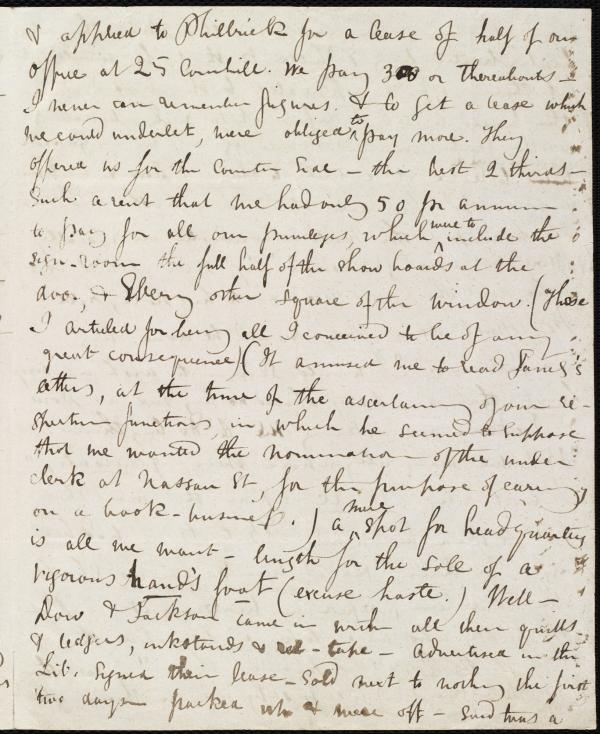 & applied to Philbrick for a lease of half of our
office at 25 Cornhill. We pay 300 or thereabouts –
I never can remember figures. & to get a lease which
we could underlet, were obliged to pay more. They
offered us for the Counter side – the best 2 thirds –
such a rent that we had only 50 pr annum
to pay for all our privileges, which were to include the
sign-room the full half of the show boards at the
door, & Every other square of the window. (These
I articled for being all I conceived to be of any
great consequence) (It amused me to read James's
letters, at the time of the ascertaining of our re-
spective functions, in which he seemed to suppose
that we wanted the nomination of the under
clerk at Nassau St, for the purpose of carrying
on a book-business.) A mere spot for head quarters
is all we want – length for the sole of a
vigorous hand's foot (excuse haste.) Well –
Dow & Jackson came in with all their quills
& ledgers, inkstands & red-tape – advertised in the
Lib. signed their lease – sold next to nothing the first
two days – packed up & were off – said twas a